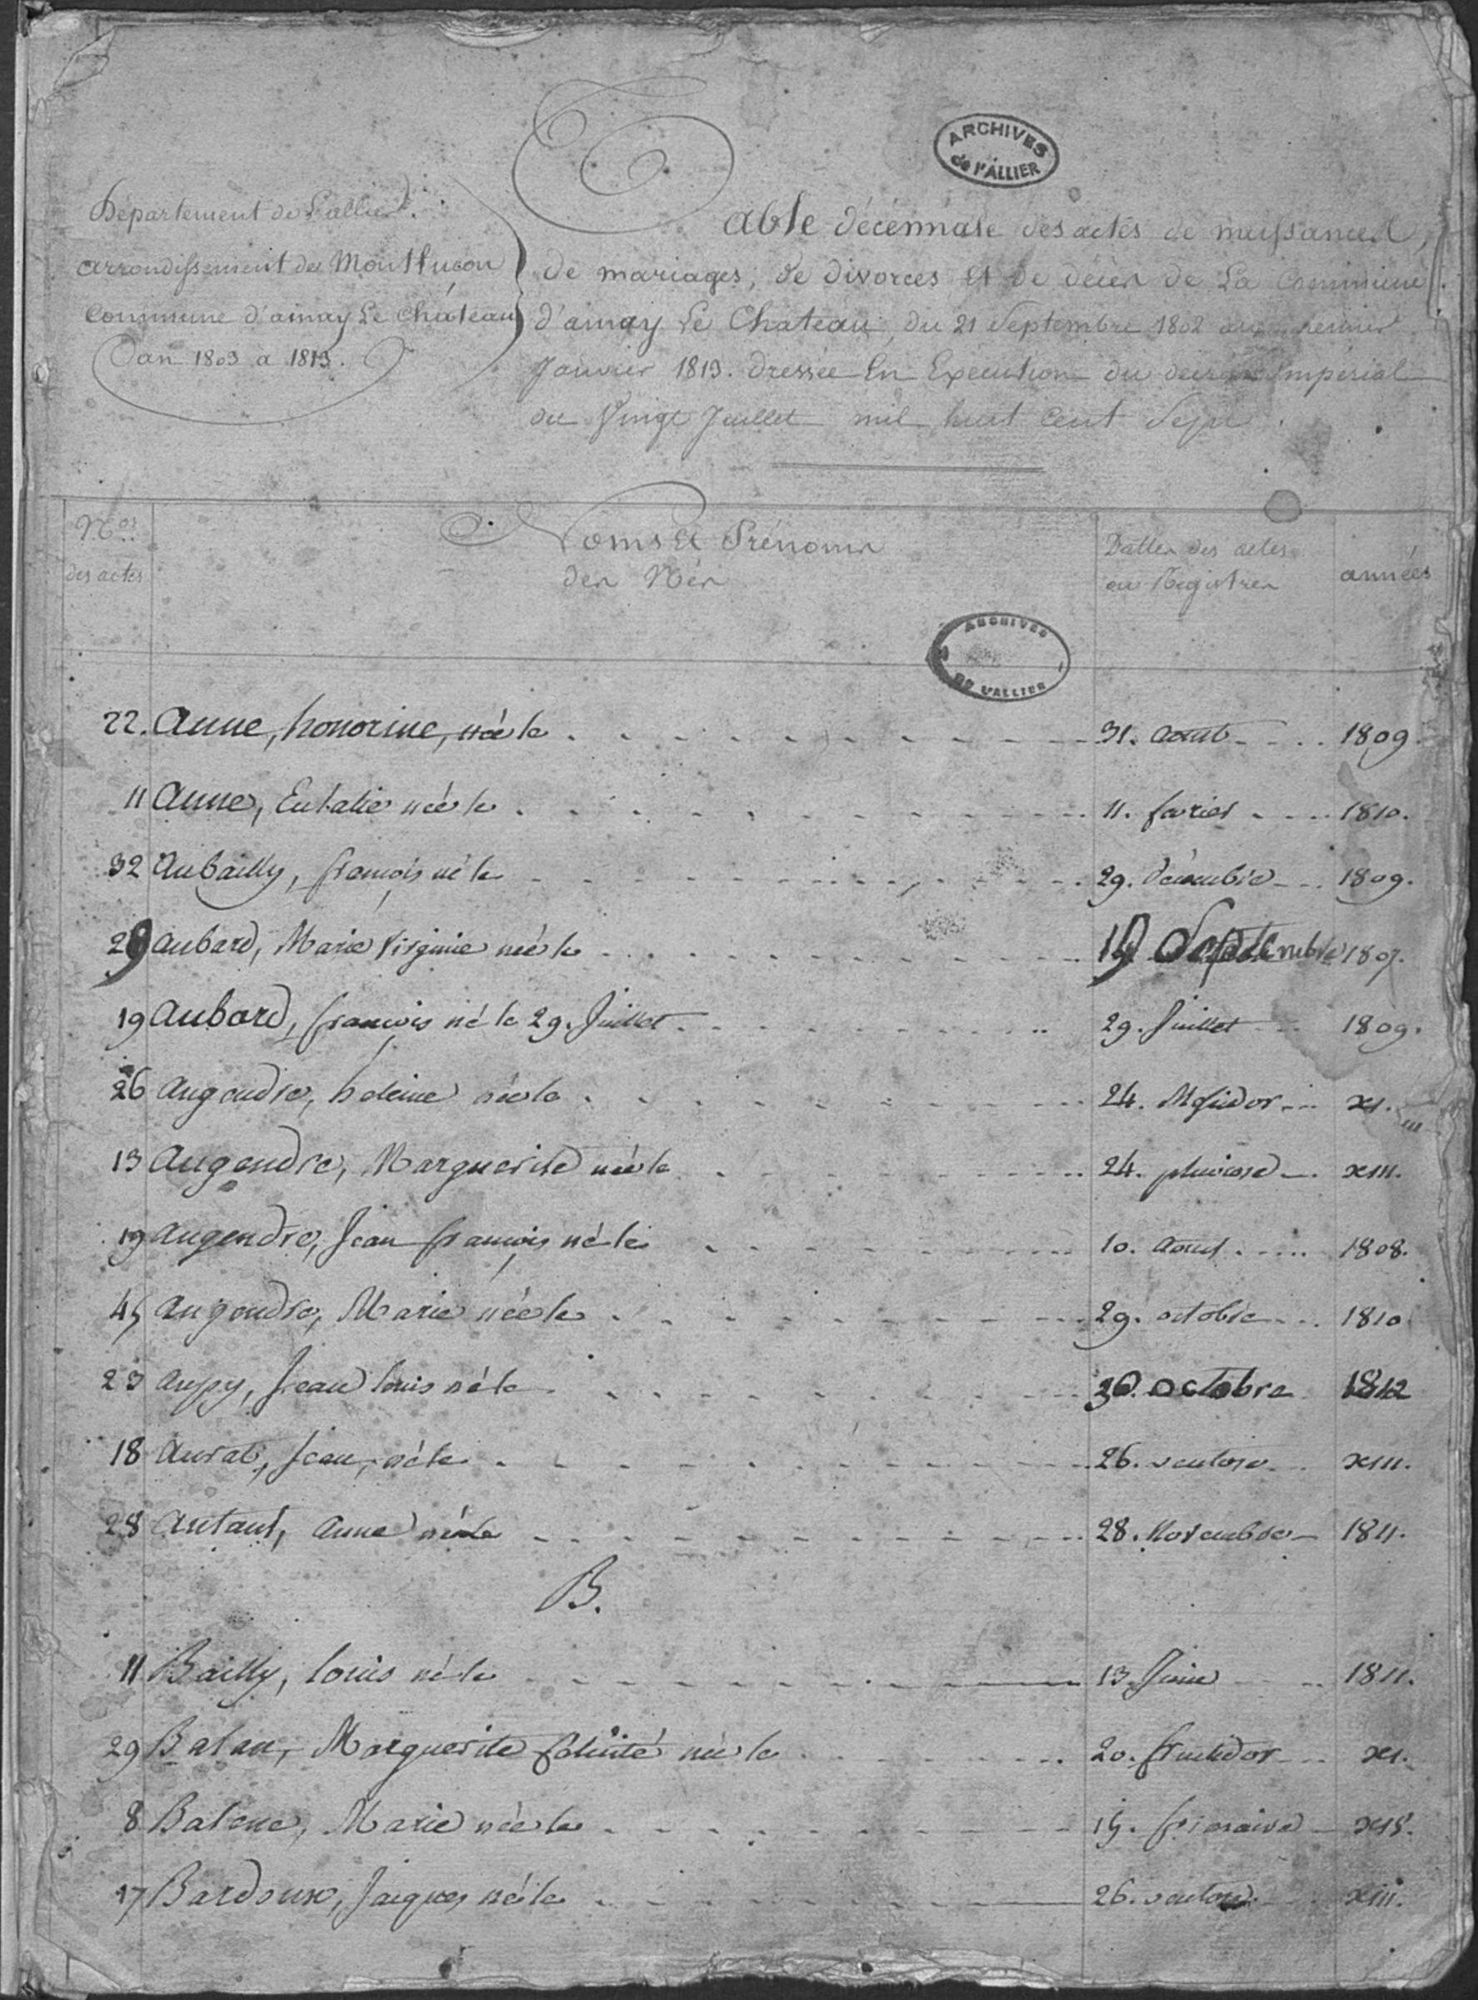 ARCHIVES
de l'ALLIER
Département de L'allier.
arrondissement de Montlucon
Commune d'ainay Le Château
an 1803 a 1813.
Table décennale des actes de naissances,
de mariages, de divorces et de décès de La Commune
d'ainay Le Chateau, du 21 Septembre 1802 au premier
Janvier 1813. dressée En Exécution du decret Impérial
du Vingt Juillet mil huit Cent Sept.
Nos des actes Noms et Prénoms des Nés Dattes des actes au Registres années
ARCHIVES
DE L'ALLIER
22. Anne, honorine, née le 31. Aout 1809.
11 Anne, Eulalie née le 11. fevrier 1810.
32 Aubailly, françois né le 29. décembre 1809.
29 Aubard, Marie Virginie née le Septembre 1807.
19 Aubard, françois né le 29. Juillet 29. Juillet 1809.
26 Augendre, heleine née le 24. Messidor xi.
13 Augendre, Marguerite née le 24. pluviose xiii.
19 Augendre, Jean françois né le 10. Aout 1808.
45 Augendre, Marie née le 29. octobre 1810
23 Aupy, Jean louis né le 30 octobre 1812
18 Aurat, Jean, né le 26. ventose xiii.
28 Autant, Anne née le 28. Novembre 1811.
B.
11 Bailly, louis né le 13. Juin 1811.
29 Balan, Marguerite felicité née le 20. fructidor xi.
8 Balene, Marie née le 15. frimaire
17 Bardoux, Jacques né le 26. ventose xiii.